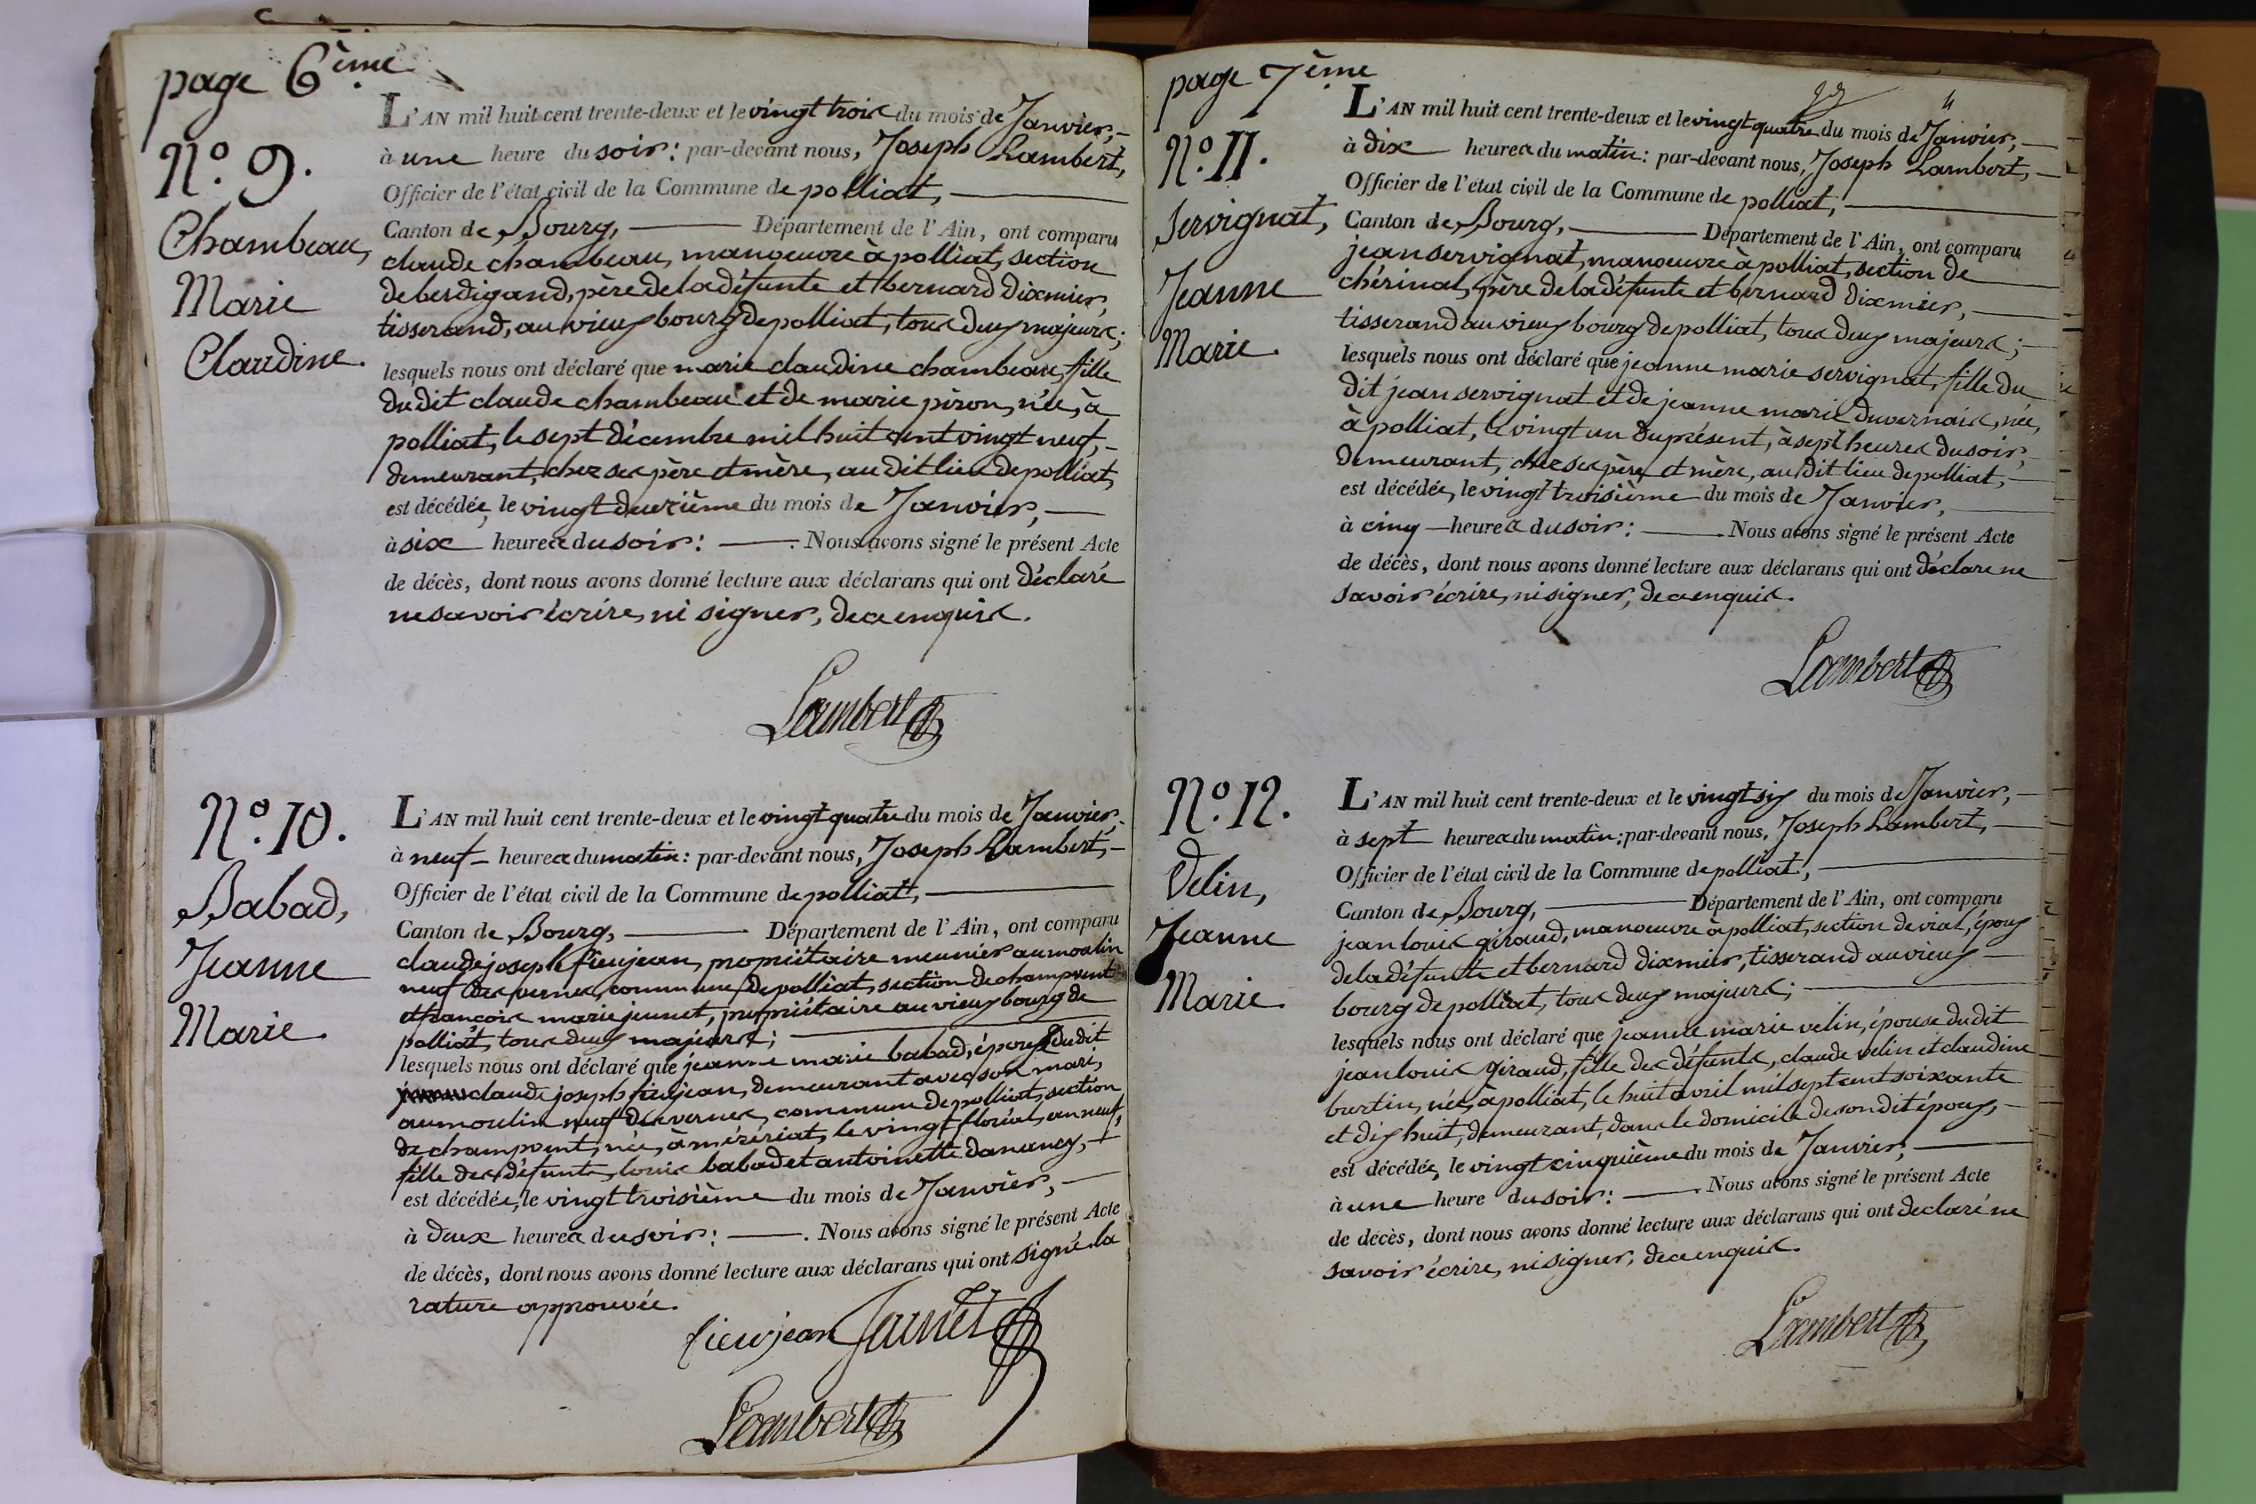 page 6ème
N.° 9.
Chambeau,
Marie
Claudine.
L'AN mil huit cent trente-deux et le vingt trois du mois de Janvier,
à une heure du soir: par-devant nous, Joseph Lambert,
Officier de l'état civil de la Commune de polliat,
Canton de Bourg, Département de l'Ain, ont comparu
claude chambeau, manoeuvre à polliat, section
de berdigand, père de la défunte et bernard dixmier,
tisserand, au vieux bourg de polliat, tous deux majeurs;
lesquels nous ont déclaré que marie claudine chambeau, fille
du dit claude chambeau et de marie piron, née, à
polliat, le sept décembre mil huit cent vingt neuf,
demeurant, chez ses père et mère, au dit lieu de polliat,
est décédée, le vingt deuxième du mois de Janvier,
à six heures du soir: . Nous avons signé le présent Acte
de décès, dont nous avons donné lecture aux déclarans qui ont déclaré
ne savoir écrire, ni signer, de ce enquis.
Lambert
N.° 10.
Babad,
Jeanne
Marie.
L'AN mil huit cent trente-deux et le vingt quatre du mois de Janvier,
à neuf heures du matin: par-devant nous, Joseph Lambert,
Officier de l'état civil de la Commune de polliatt,
Canton de Bourg, Département de l'Ain, ont comparu
claude joseph fieujean, propriétaire meunier au moulin
neuf des vernes, commune de polliat, section de champvent
et françois marie jeunet, propriétaire au vieux bourg de
polliat, tous deux majeurs;
lesquels nous ont déclaré que jeanne marie babad, épouse du dit
claude joseph fieujean, demeurant avec son mari,
au moulin neuf des vernes, commune de polliat, section
de champvent, née, à mézériat, le vingt floréal, an neuf,
fille des défunts, louis babad et antoinette dananey,
est décédée, le vingt troisième du mois de Janvier,
à deux heures du soir: . Nous avons signé le présent Acte
de décès, dont nous avons donné lecture aux déclarans qui ont signé la
rature approuvée.
fieujean Jeunet
Lambert
page 7ème
N.° 11.
Servignat,
Jeanne
Marie.
L'AN mil huit cent trente-deux et le vingt quatre du mois de Janvier,
à dix heures du matin: par-devant nous, Joseph Lambert,
Officier de l'état civil de la Commune de polliat,
Canton de Bourg, Département de l'Ain, ont comparu
jean servignat, manoeuvre à polliat, section de
chérinal, père de la défunte et bernard dixmier,
tisserand au vieux bourg de polliat, tous deux majeurs;
lesquels nous ont déclaré que jeanne marie servignat, fille du
dit jean servignat et de jeanne marie duvernais, née,
à polliat, le vingt un du présent, à sept heures du soir,
demeurant, chez ses père et mère, au dit lieu de polliat,
est décédée, le vingt troisième du mois de Janvier,
à cinq heures du soir: . Nous avons signé le présent Acte
de décès, dont nous avons donné lecture aux déclarans qui ont déclaré ne
savoir écrire, ni signer, de ce enquis.
Lambert
N.° 12.
Velin,
Jeanne
Marie.
L'AN mil huit cent trente-deux et le vingt six du mois de Janvier,
à sept heures du matin: par-devant nous, Joseph Lambert,
Officier de l'état civil de la Commune de polliat,
Canton de Bourg, Département de l'Ain, ont comparu
jean louis giraud, manoeuvre à polliat, section de vial, époux
de la défunte et bernard dixmier, tisserand au vieux
bourg de polliat, tous deux majeurs;
lesquels nous ont déclaré que jeanne marie velin, épouse du dit
jean louis giraud, fille des défunts, claude velin et claudine
burtin, née, à polliat, le huit avril mil sept cent soixante
et dix huit, demeurant, dans le domicile de son dit époux,
est décédée, le vingt cinquième du mois de Janvier,
à une heure du soir: . Nous avons signé le présent Acte
de décès, dont nous avons donné lecture aux déclarans qui ont declaré ne
savoir écrire, ni signer, de ce enquis.
Lambert